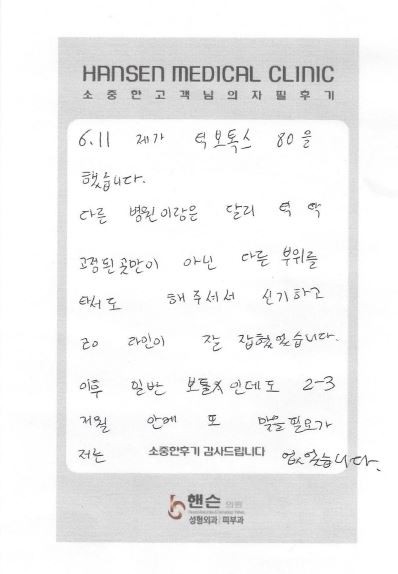 HANSEN MEDICAL CLINIC
소중한고객님의자필후기
6.11 제가 턱보톡스 80을
했습니다.
다른 병원이랑은 달리 턱 딱
고정된곳만이 아닌 다른 부위를
해주셔서 신기하고
라인이 잘 잡혔었습니다.
이후 일반 보톡스인데도 2-3
개월 안에 또 맞을필요가
저는 소중한후기 감사드립니다 없었습니다.
핸슨 의원
성형외과 피부과